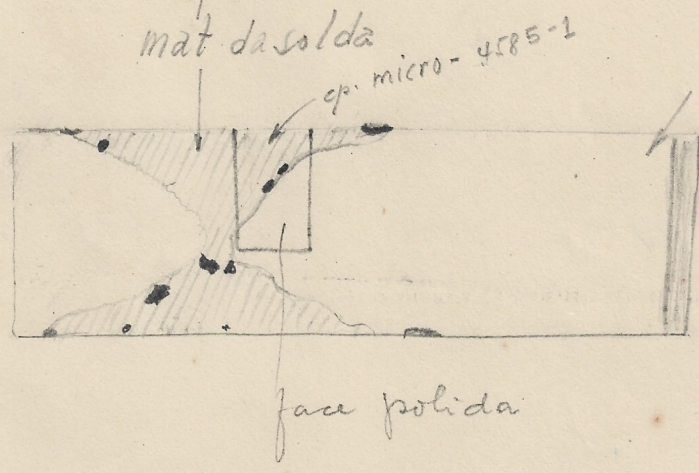 mat da solda
cp. micro - 4585-1
face polida